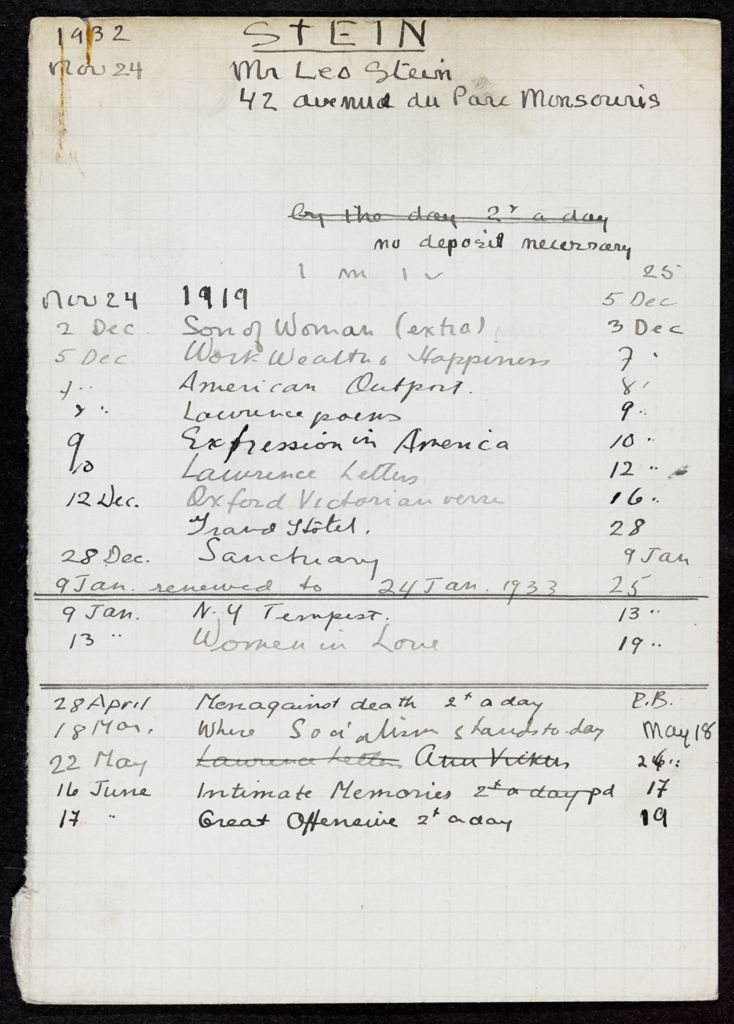 1932 STEIN
Nov 24 Mr Leo Stein
42 avenue du Parc Monsouris
by the day 2r a day
no deposit necessary
1 m 1 v 25
Nov 24 1919 5 Dec
2 Dec. Son of Woman (extra) 3 Dec
5 Dec. Work Wealth & Happiness 7 "
7 " American Outpost. 8 "
8 " Lawrence poems 9 "
9 Expression in America 10 "
10 Lawrence Letters 12 "
12 Dec. Oxford Victorian verse 16 "
Grand Hôtel. 28
28 Dec. Sanctuary 9 Jan
9 Jan. renewed to 24 Jan. 1933 25
9 Jan. N. Y Tempest. 13 "
13 " Women in Love 19 "
28 April Men against death 2r a day P.B.
18 Mai. Where Socialism stands to-day May 18
22 May Lawrence Letters Ann Vickers 26 "
16 June Intimate Memories 2r a day pd 17
17 " Great Offensive 2r a day 19